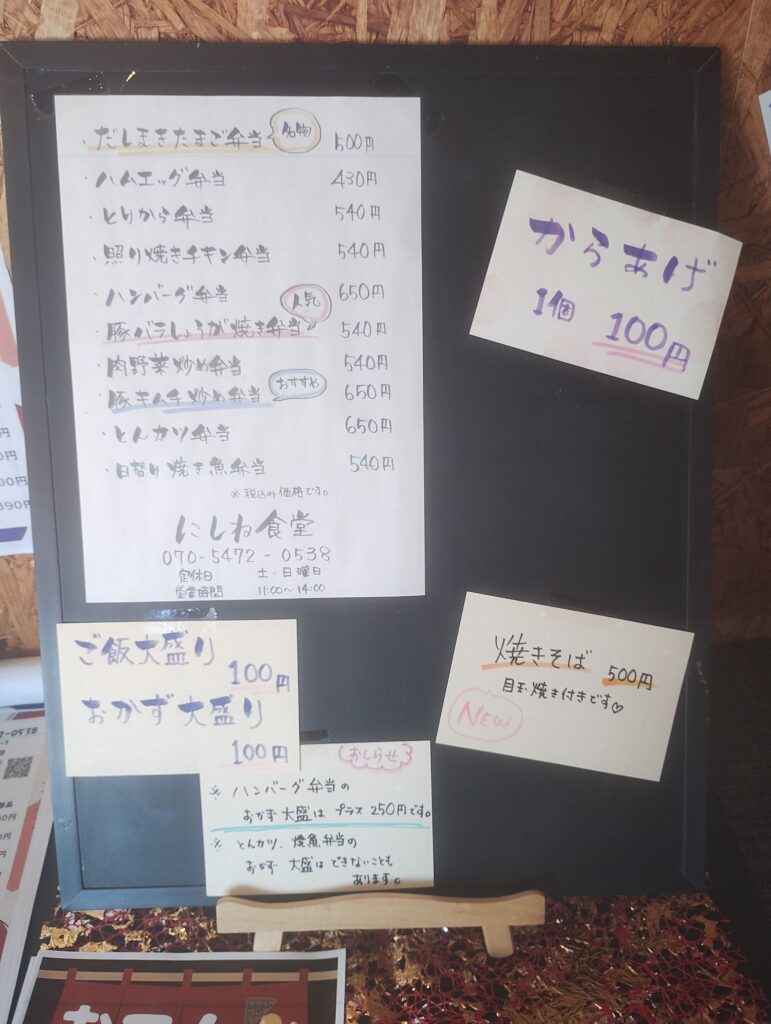 ・だしまきたまご弁当 名物 500円
・ハムエッグ弁当 430円
・とりから弁当 540円
・照り焼きチキン弁当 540円
・ハンバーグ弁当 650円
人気
・豚バラしょうが焼き弁当 540円
・肉野菜炒め弁当 540円
おすすめ
・豚キムチ炒め弁当 650円
・とんカツ弁当 650円
・日替り焼き魚弁当 540円
※税込み価格です。
にしね食堂
070-5472-0538
定休日 土・日曜日
営業時間 11:00〜14:00
からあげ
1個 100円
ご飯大盛り
100円
おかず大盛り
100円
焼きそば 500円
目玉焼き付きです♡
NEW
おしらせ
※ ハンバーグ弁当の
おかず大盛は プラス250円です。
※ とんカツ、焼魚弁当の
おかず 大盛は できないことも
あります。